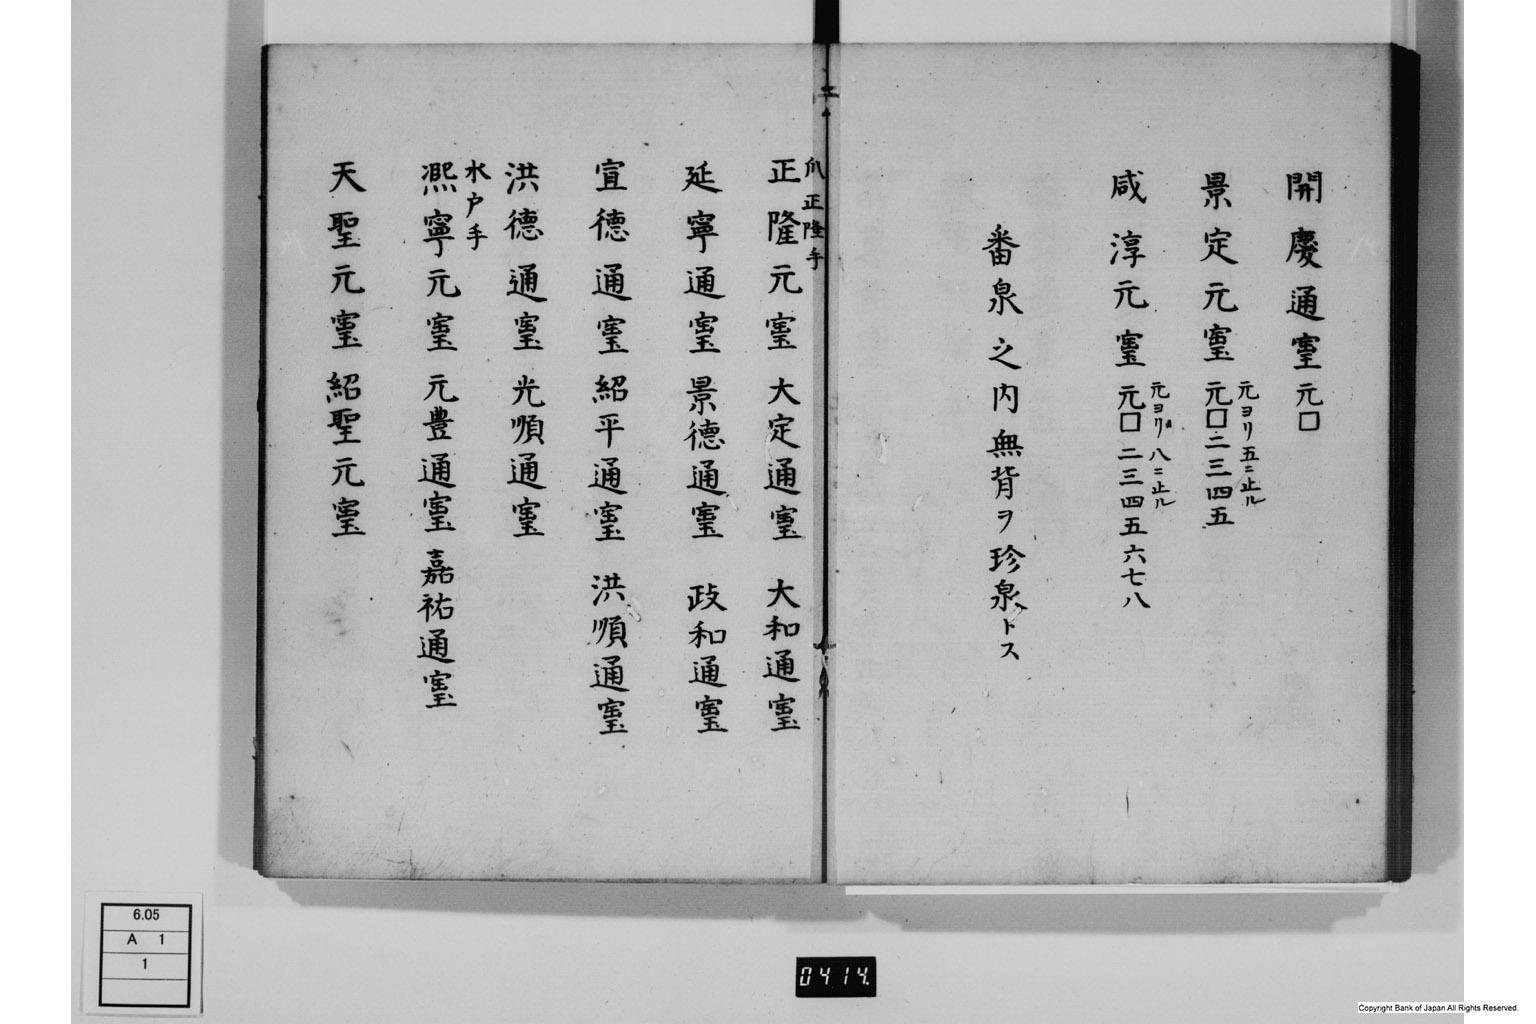 開慶通寳 元口
景定元寳 元口二三四五
元ヨリ五ニ止ル
咸淳元寳 元口二三四五六七八
元ヨリ八ニ止ル
番泉之内無背ヲ珍泉トス
爪正隆手
正隆元寳 大定通寳 大和通寳
延寧通寳 景德通寳 政和通寳
宣德通寳 紹平通寳 洪順通寳
洪德通寳 光順通寳
水戸手
熈寧元寳 元豊通寳 嘉祐通寳
天聖元寳 紹聖元寳
6.05
A 1
1
0414.
Copyright Bank of Japan All Rights Reserved.